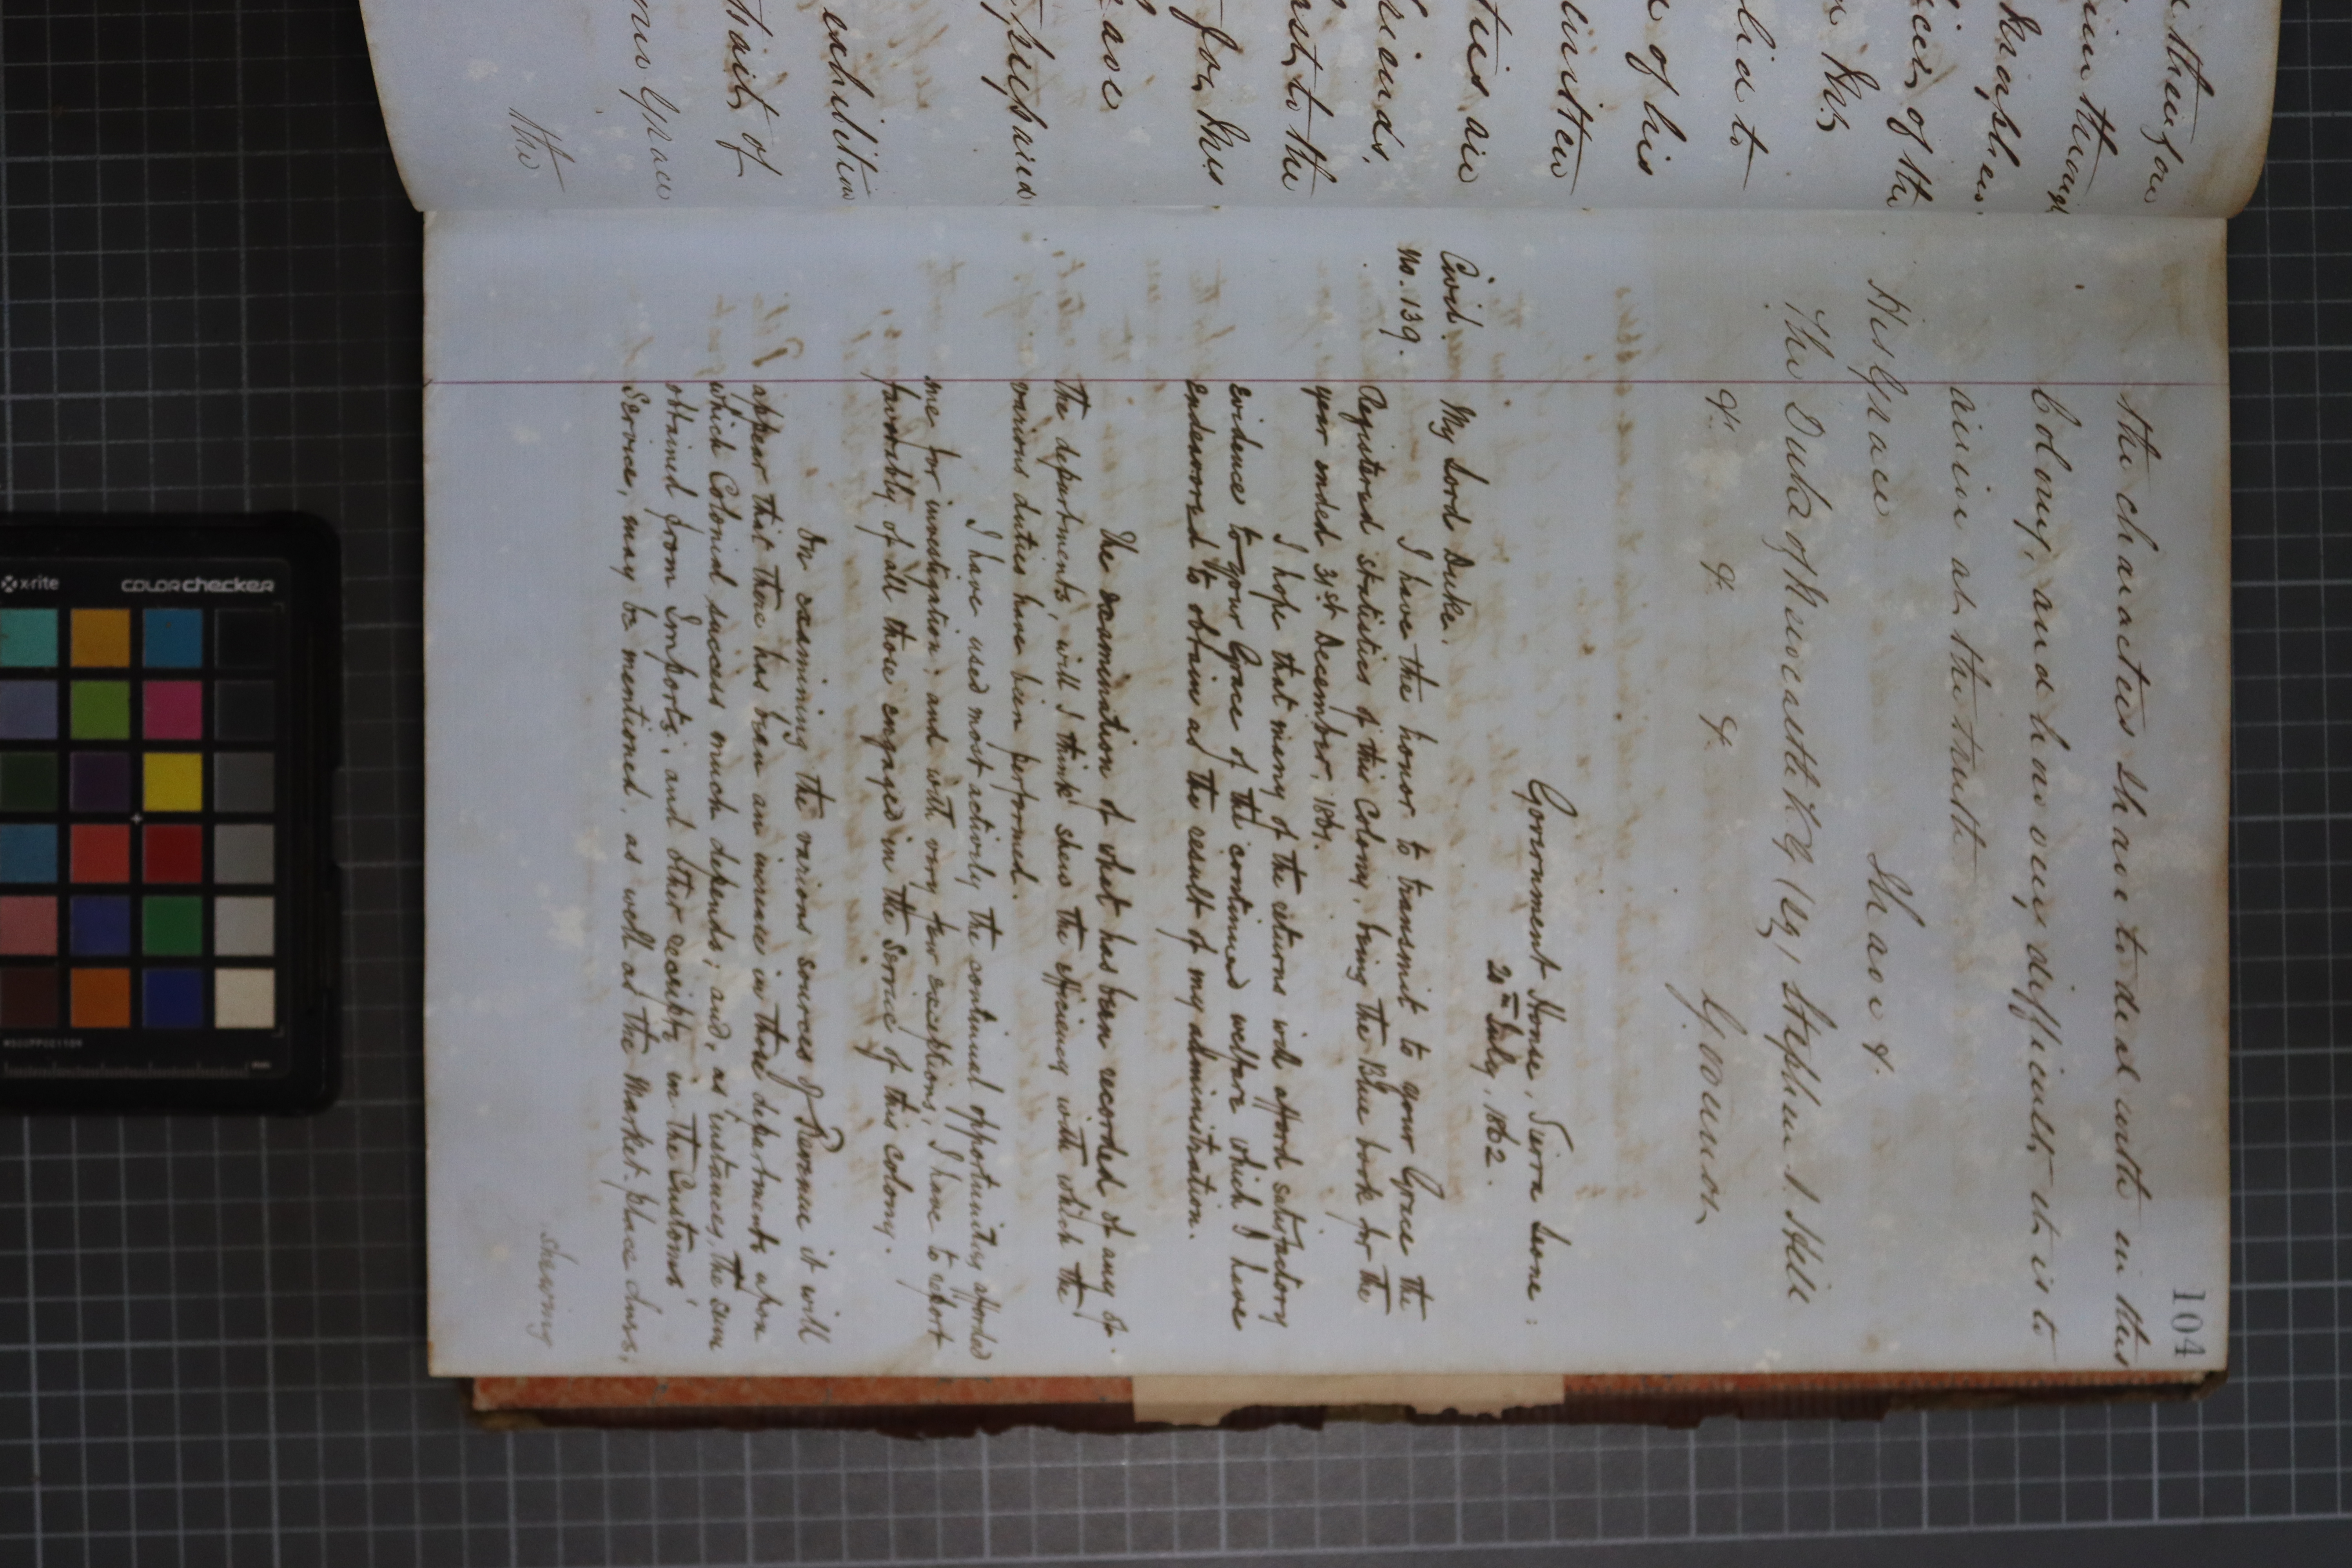 104
the characters I have to deal with in this
Colony, and how very difficult it is to
arrive at the truth
I have &.
His Grace
The Duke of Newcastle K.G (sg) Stephen J. Hill
&. &. &. Governor
Government House, Sierra Leone:
20th July, 1862.
Civil.
No. 139.
My Lord Duke.
I have the honor to transmit to your Grace the
Registered statistics of this Colony, being the Blue book for the
year ended 31st December, 1861.
I hope that many of the returns will afford satisfactory
evidence to your Grace of the continued welfare which I have
endeavored to obtain as the result of my administration.
The examination of what has been recorded of any of
the departments, will I think shew the efficiency with which the
various duties have been performed.
I have used most actively the continual opportunity afforded
me for investigation; and with very few exceptions, I have to report
favorably of all those engaged in the Service of this colony.
On examining the various sources of Revenue it will
appear that there has been an increase in those departments upon
which Colonial success much depends; and, as instances, the sum
obtained from Imports, and other receipts in the Customs'
Service, may be mentioned, as well as the Market-place dues,
shewing
therefore
of the
of his
written
ties are
friends,
for this
have
prepared
exhibition
of
Grace
the
x-rite
colorchecker